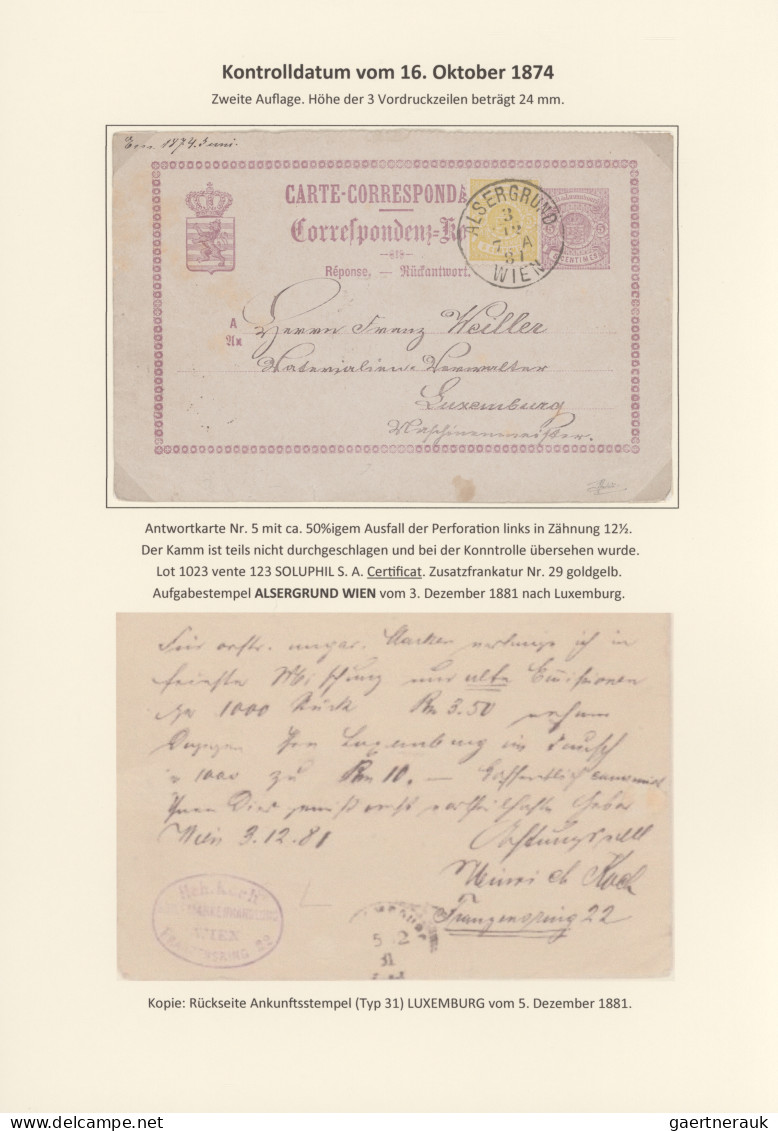 Kontrolldatum vom 16. Oktober 1874
Zweite Auflage. Höhe der 3 Vordruckzeilen beträgt 24 mm.
1874 Juni.
CARTE-CORRESPONDA
Correspondenz-K
Réponse. — Rückantwort.
ALSERGRUND
3
12
7 A
81
WIEN
5 5
CENTIMES
A
An
Herrn Franz Weiller
Materialien-Verwalter
Luxemburg
Maschinenmeister.
Antwortkarte Nr. 5 mit ca. 50%igem Ausfall der Perforation links in Zähnung 12½.
Der Kamm ist teils nicht durchgeschlagen und bei der Konntrolle übersehen wurde.
Lot 1023 vente 123 SOLUPHIL S. A. Certificat. Zusatzfrankatur Nr. 29 goldgelb.
Aufgabestempel ALSERGRUND WIEN vom 3. Dezember 1881 nach Luxemburg.
Für oestr. ungar. Marken verlange ich in
feinster Mischung nur alte Emissionen
per 1000 Stück Rm 3.50 nehme
Dagegen von Luxemburg im Tausch
1000 zu Rm 10. — Hoffentlich
Wien 3.12.81 Achtungsvoll
Heinrich Koch
Franzensring 22
Hch. Koch
WIEN
FRANZENSRING 22
5 12
81
Kopie: Rückseite Ankunftsstempel (Typ 31) LUXEMBURG vom 5. Dezember 1881.
gaertnerauk